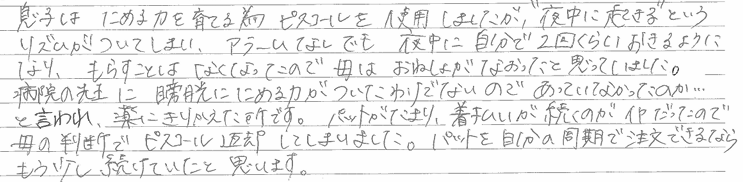 息子は ためる力を育てる為 ピスコールを 使用しましたが、"夜中に起きる"という
リズムがついてしまい、アラームなしでも 夜中に自分で2回くらいおきるように
なり、もらすことは なくなったので 母は おねしょがなおったと思ってしまいました。
病院の先生に 膀胱にためる力がついたわけでないので あっていなかったのか…
と言われ、薬にきりかえた所です。 パットがたまり、着払いが続くのがイヤだったので
母の判断で ピスコール返却してしまいました。 パットを自分の周期で注文できるなら
もう少し 続けていたと思います。